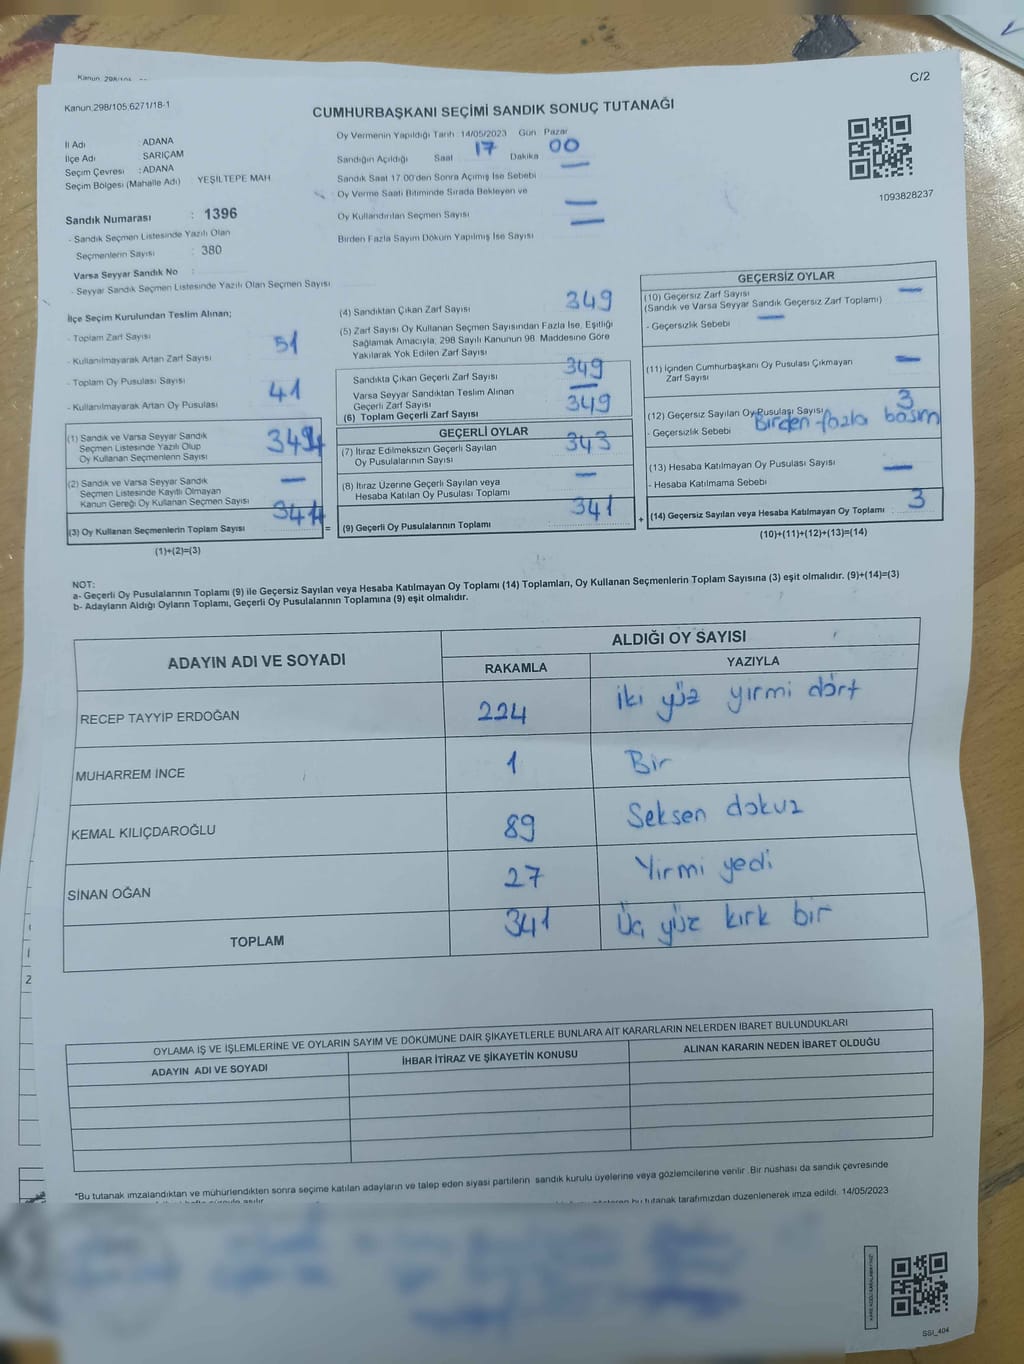 Kanun 298/101
C/2
Kanun.298/105,6271/18-1
CUMHURBAŞKANI SEÇİMİ SANDIK SONUÇ TUTANAĞI
İl Adı ADANA
İlçe Adı SARIÇAM
Seçim Çevresi :ADANA
Seçim Bölgesi (Mahalle Adı) YEŞİLTEPE MAH
Oy Vermenin Yapıldığı Tarih :14/05/2023 Gün Pazar
Sandığın Açıldığı Saat 17 Dakika 00
Sandık Saat 17.00'den Sonra Açımış İse Sebebi —
Oy Verme Saati Bitiminde Sırada Bekleyen ve
Oy Kullandırılan Seçmen Sayısı —
Birden Fazla Sayım Döküm Yapılmış İse Sayısı —
1093828237
Sandık Numarası : 1396
- Sandık Seçmen Listesinde Yazılı Olan
Seçmenlerin Sayısı : 380
Varsa Seyyar Sandık No :
- Seyyar Sandık Seçmen Listesinde Yazılı Olan Seçmen Sayısı
İlçe Seçim Kurulundan Teslim Alınan;
- Toplam Zarf Sayısı
- Kullanılmayarak Artan Zarf Sayısı 51
- Toplam Oy Pusulası Sayısı
- Kullanılmayarak Artan Oy Pusulası 41
(1) Sandık ve Varsa Seyyar Sandık
Seçmen Listesinde Yazılı Olup
Oy Kullanan Seçmenlerin Sayısı
(2) Sandık ve Varsa Seyyar Sandık
Seçmen Listesinde Kayıtlı Olmayan
Kanun Gereği Oy Kullanan Seçmen Sayısı —
(3) Oy Kullanan Seçmenlerin Toplam Sayısı =
(1)+(2)=(3)
(4) Sandıktan Çıkan Zarf Sayısı 349
(5) Zarf Sayısı Oy Kullanan Seçmen Sayısından Fazla İse, Eşitliği
Sağlamak Amacıyla, 298 Sayılı Kanunun 98. Maddesine Göre
Yakılarak Yok Edilen Zarf Sayısı
Sandıkta Çıkan Geçerli Zarf Sayısı 349
Varsa Seyyar Sandıktan Teslim Alınan
Geçerli Zarf Sayısı —
(6) Toplam Geçerli Zarf Sayısı 349
GEÇERLİ OYLAR
(7) İtiraz Edilmeksizin Geçerli Sayılan
Oy Pusulalarının Sayısı 343
(8) İtiraz Üzerine Geçerli Sayılan veya
Hesaba Katılan Oy Pusulası Toplamı —
(9) Geçerli Oy Pusulalarının Toplamı : 341 +
GEÇERSİZ OYLAR
(10) Geçersiz Zarf Sayısı —
(Sandık ve Varsa Seyyar Sandık Geçersiz Zarf Toplamı)
- Geçersizlik Sebebi —
(11) İçinden Cumhurbaşkanı Oy Pusulası Çıkmayan
Zarf Sayısı —
(12) Geçersiz Sayılan Oy Pusulası Sayısı 3
- Geçersizlik Sebebi Birden fazla basım
(13) Hesaba Katılmayan Oy Pusulası Sayısı —
- Hesaba Katılmama Sebebi
(14) Geçersiz Sayılan veya Hesaba Katılmayan Oy Toplamı : 3
(10)+(11)+(12)+(13)=(14)
NOT:
a- Geçerli Oy Pusulalarının Toplamı (9) ile Geçersiz Sayılan veya Hesaba Katılmayan Oy Toplamı (14) Toplamları, Oy Kullanan Seçmenlerin Toplam Sayısına (3) eşit olmalıdır. (9)+(14)=(3)
b- Adayların Aldığı Oyların Toplamı, Geçerli Oy Pusulalarının Toplamına (9) eşit olmalıdır.
ADAYIN ADI VE SOYADI ALDIĞI OY SAYISI
RAKAMLA YAZIYLA
RECEP TAYYİP ERDOĞAN 224 İki yüz yirmi dört
MUHARREM İNCE 1 Bir
KEMAL KILIÇDAROĞLU 89 Seksen dokuz
SİNAN OĞAN 27 Yirmi yedi
TOPLAM 341 Üç yüz kırk bir
OYLAMA İŞ VE İŞLEMLERİNE VE OYLARIN SAYIM VE DÖKÜMÜNE DAİR ŞİKAYETLERLE BUNLARA AİT KARARLARIN NELERDEN İBARET BULUNDUKLARI
ADAYIN ADI VE SOYADI İHBAR İTİRAZ VE ŞİKAYETİN KONUSU ALINAN KARARIN NEDEN İBARET OLDUĞU
*Bu tutanak imzalandıktan ve mühürlendikten sonra seçime katılan adayların ve talep eden siyasi partilerin sandık kurulu üyelerine veya gözlemcilerine verilir. Bir nüshası da sandık çevresinde
bu tutanak tarafımızdan düzenlenerek imza edildi. 14/05/2023
SSI_404